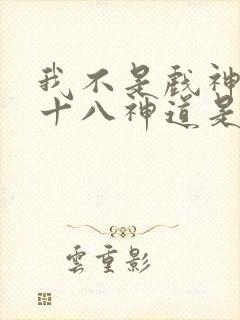 我不是戲神
十八神道是
雲重影